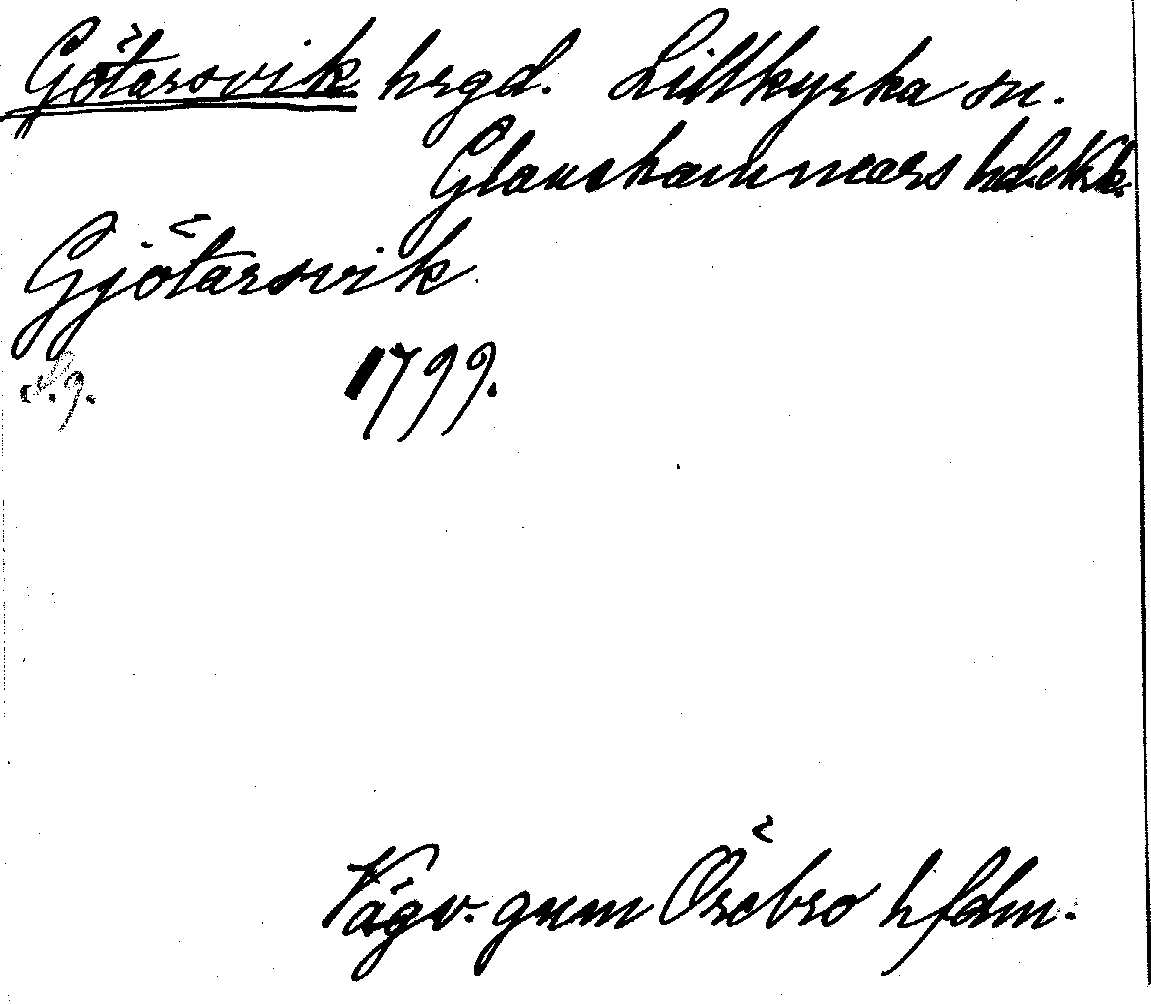 Götarsvik hrgd. Lillkyrka sn.
Glanshammars hd.
Gjötarsvik
1799.
Vägv. gnm Örebro hfdm.